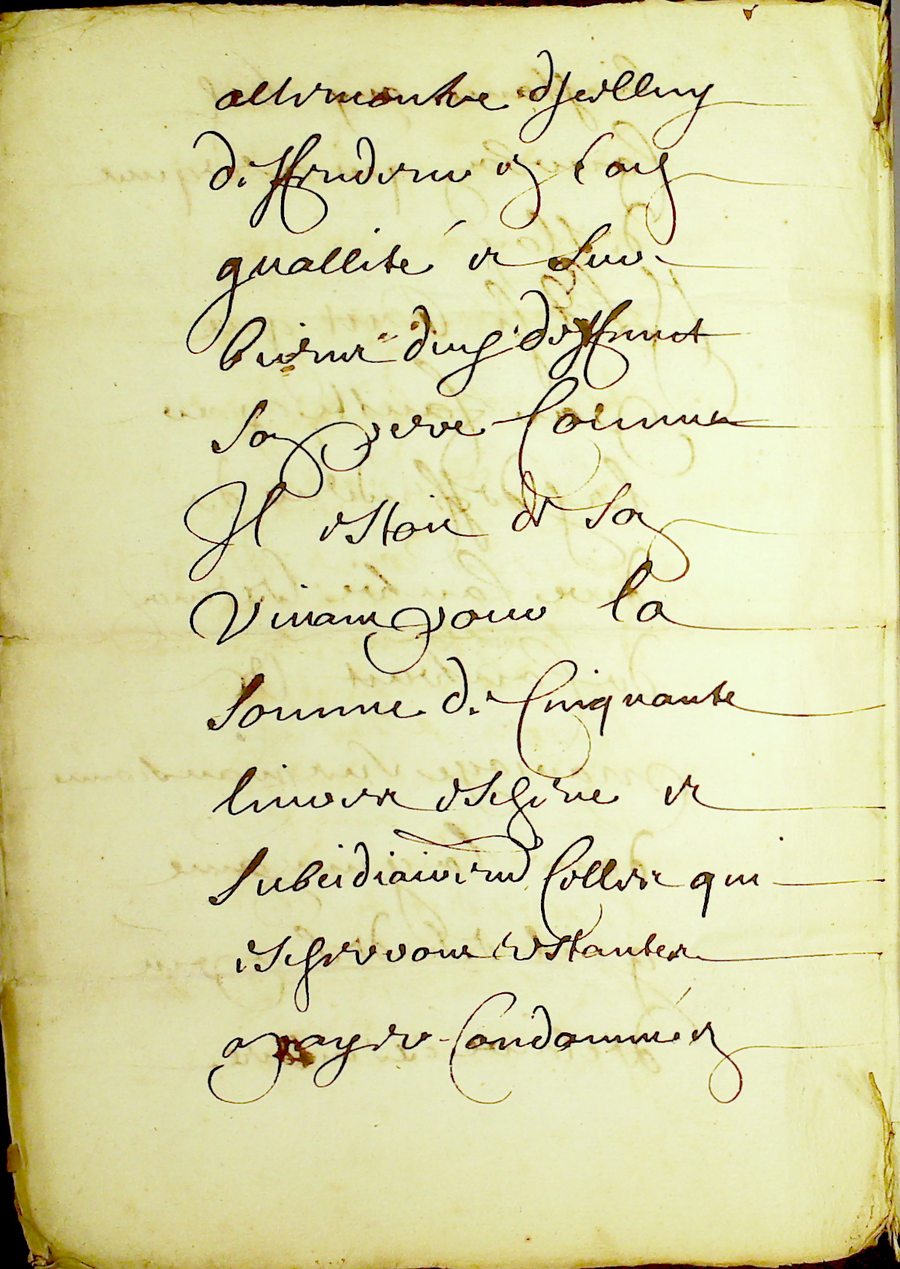 allimentre d'Jcelluy
deffenderes en lad
quallitté et sur
biens dud deffunct
son pere Comme
Il estoit de son
vivant pour la
somme de Cinquante
livres escheue et
subcidiairemt Celles qui
escherront restantes
a payer Condamné en